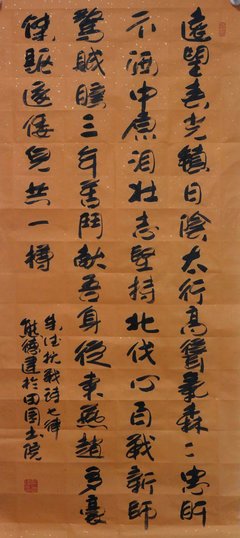 遠望春光镇日陰太行高聳氣森二忠肝
不洒中原泪壮志堅持北伐心百戰新師
驚賊膽三年奮鬥献吾身從來燕趙多豪
傑驅逐倭兒共一樽
朱德抗戰詩七律
熊德達於田園书院